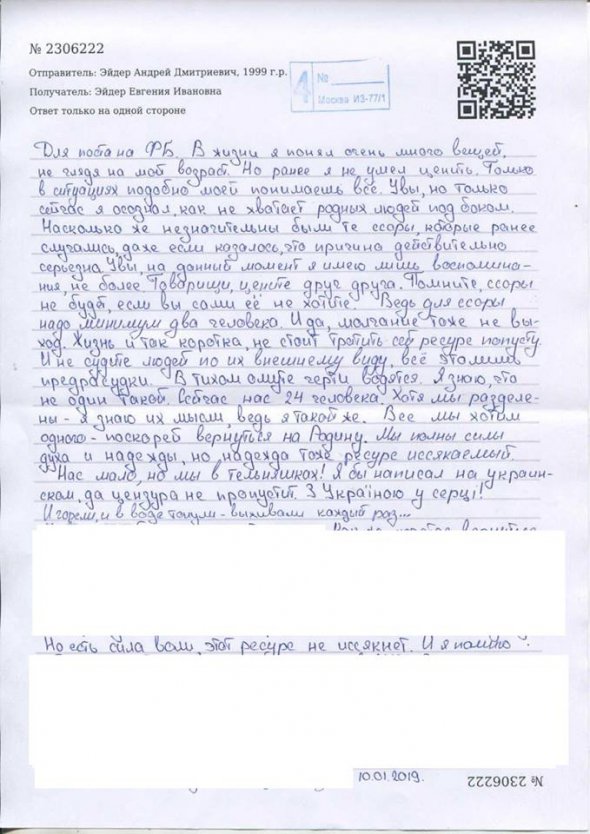 № 2306222
Отправитель: Эйдер Андрей Дмитриевич, 1999 г.р.
Получатель: Эйдер Евгения Ивановна
Ответ только на одной стороне
4 №
Москва ИЗ-77/1
Для поста на ФБ. В жизни я понял очень много вещей,
не глядя на мой возраст. Но ранее я не умел ценить. Только
в ситуациях подобно моей понимаешь всё. Увы, но только
сейчас я осознал, как не хватает родных людей под боком.
Насколько же незначительны были те ссоры, которые ранее
случались, даже если казалось, что причина действительно
серьезна. Увы, на данный момент я имею лишь воспомина-
ния, не более. Товарищи, цените друг друга. Помните, ссоры
не будет, если вы сами её не хотите. Ведь для ссоры
надо минимум два человека. И да, молчание тоже не вы-
ход. Жизнь и так коротка, не стоит тратить сей ресурс попусту.
И не судите людей по их внешнему виду, всё это лишь
предрассудки. В тихом омуте черти водятся. Я знаю, что
не один такой. Сейчас нас 24 человека. Хотя мы разделе-
ны - я знаю их мысли, ведь я такой же. Все мы хотим
одного - поскорей вернуться на Родину. Мы полны силы
духа и надежды, но надежда тоже ресурс иссякаемый.
Нас мало, но мы в тельняшках! Я бы написал на украин-
ском, да цензура не пропустит. З Україною у серці!
И горели, и в воде тонули - выживали каждый раз...
Но есть сила воли, этот ресурс не иссякнет. И я помню
10.01.2019.
№ 2306222